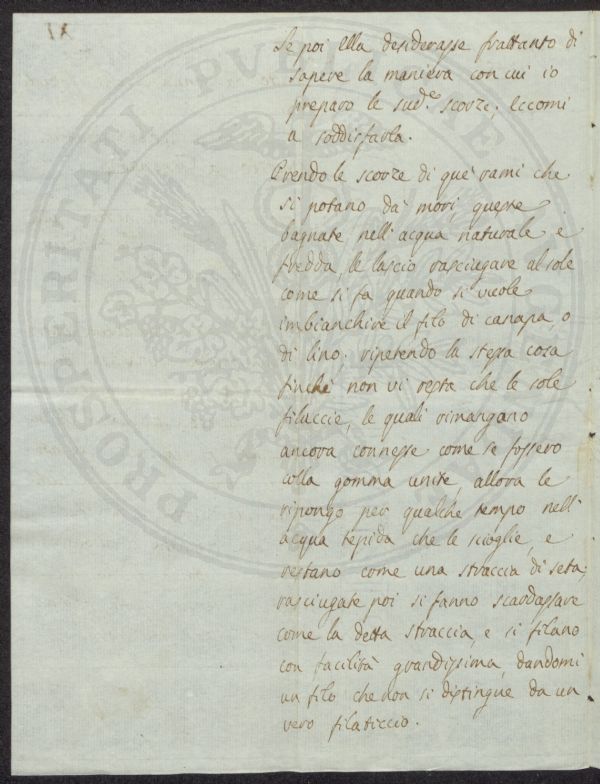 Se poi Ella desiderasse frattanto di
sapere la maniera con cui io
preparo le sud.e scorze; Eccomi
a soddisfarla.
Prendo le scorze di que' rami che
si potano da' mori, queste
bagnate nell'acqua naturale e
fredda, le lascio rasciugare al sole
come si fa quando si vuole
imbianchire il filo di canapa, o
di lino; ripetendo la stessa cosa
finchè non vi resta che le sole
filuccie, le quali rimangano
ancora connesse come se fossero
colla gomma unite allora le
ripongo per qualche tempo nell'
acqua tepida che le scioglie, e
restano come una straccia di seta;
rasciugate poi si fanno scardassare
come la detta straccia, e si filano
con facilità grandissima, dandomi
un filo che non si distingue da un
vero filaticcio.
PROSPERITATI PUBLICAE